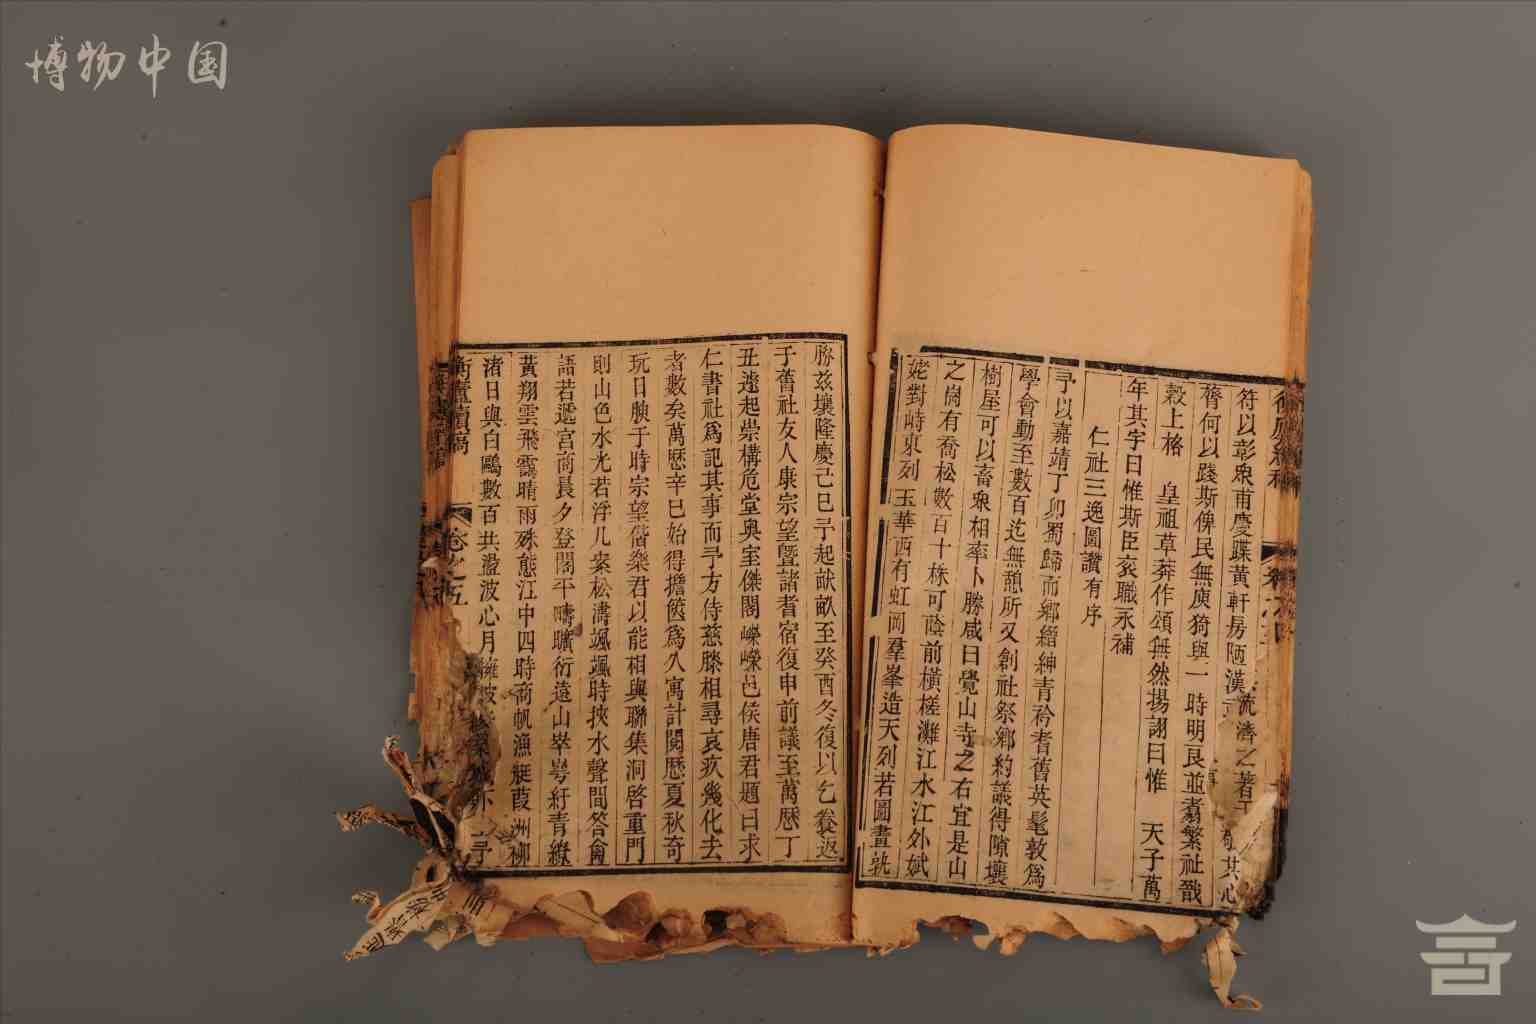 博物中国
符以彰衆甫慶蹀黃軒房陋漢
流濟之著
膂何以踐斯俾民無庾猗與一時明良並翥繁祉戩
穀上格　皇祖草莽作頌無然揚詡曰惟　天子萬
年其字曰惟斯臣衮職永補
仁社三逸圖讚有序
予以嘉靖丁卯蜀歸而鄉縉紳青衿耆舊英髦敦爲
學會動至數百迄無憩所又創社祭鄉約議得隙壤
樹屋可以畜衆相率卜勝咸曰覺山寺之右宜是山
之崗有喬松數百十株可蔭前橫槎灘江水江外斌
姥對峙東列玉華西有虹岡羣峯造天列若圖畫孰
勝兹壤隆慶己巳予起畎畝至癸酉冬復以乞養返
于舊社友人康宗望暨諸耆宿復申前議至萬厯丁
丑遂起崇構危堂奥室傑閣嶸嶸邑侯唐君題曰求
仁書社爲記其事而予方侍慈膝相尋哀疚幾化去
者數矣萬厯辛巳始得擔簦爲久寓計閱厯夏秋奇
玩日腴于時宗望偕樂君以能相與聯集洞啓重門
則山色水光若浮几案松濤颯颯時挾水聲間答禽
語若遞宫商晨夕登閣平疇曠衍遠山崒㟧紆青繚
黃翔雲飛靄晴雨殊態江中四時商帆漁艇葭洲柳
渚日與白鷗數百共盪波心月
衡廬續稿
卷之五